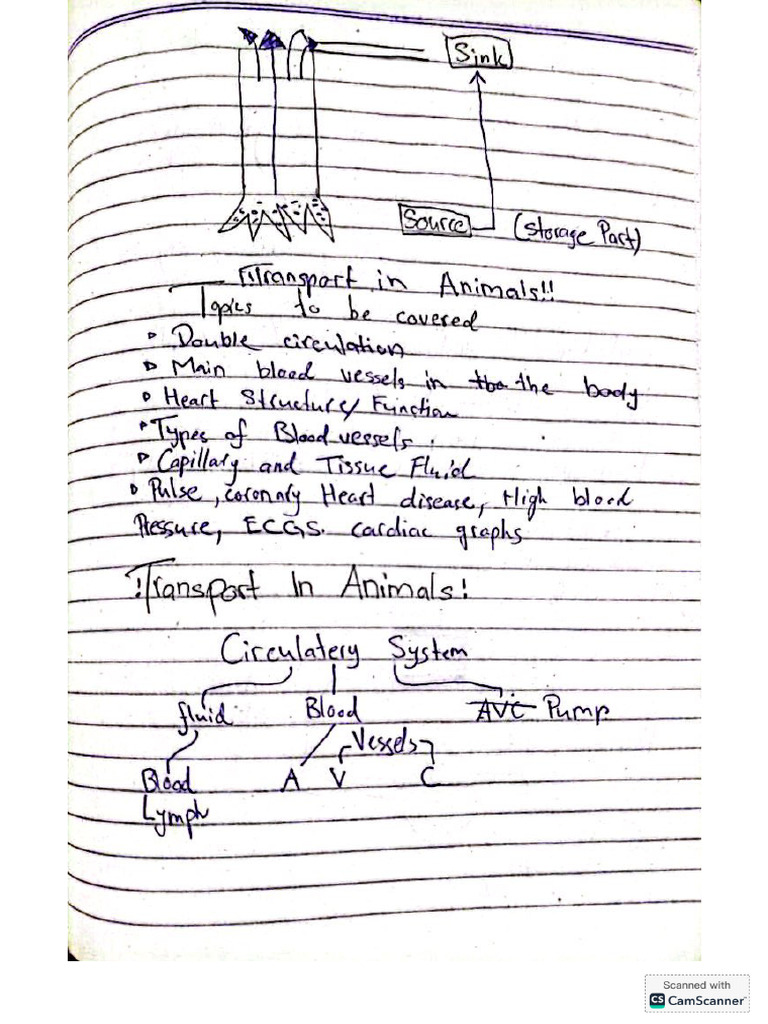 Sink
Source (Storage Part)
Transport in Animals!!
Topics to be covered
Double circulation
Main blood vessels in the body
Heart Structure/ Function
Types of Blood vessels.
Capillary and Tissue Fluid
Pulse, coronary Heart disease, High blood
Pressure, ECGS. cardiac graphs
!Transport In Animals!
Circulatery System
fluid Blood AVC Pump
Vessels
Blood A V C
Lymph
Scanned with
CS CamScanner